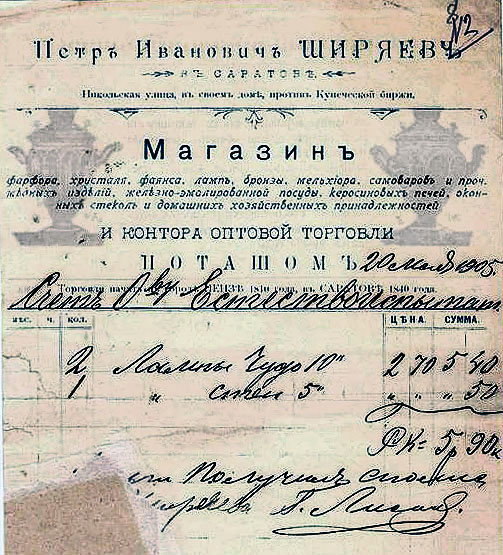 Петръ Ивановичъ ШИРЯЕВЪ
ВЪ САРАТОВѢ.
Никольская улица, въ своемъ домѣ, противъ Купеческой биржи.
Магазинъ
фарфора, хрусталя, фаянса, лампъ, бронзы, мельхіора, самоваровъ и проч.
мѣдныхъ издѣлій, желѣзно-эмалированной посуды, керосиновыхъ печей, окон-
ныхъ стеколъ и домашнихъ хозяйственныхъ принадлежностей
И КОНТОРА ОПТОВОЙ ТОРГОВЛИ
ПОТАШОМЪ 20 мая 1905
Торговля въ ПЕНЗѢ 1810 года, въ САРАТОВѢ 1840 года.
Счетъ О-ву Естествоиспытат.
вѣс. ч. кол. ЦѢНА. СУММА.
2 Лампы Чудо 10" 2 70 5 40
1 " стен 5" " " " 50
РК= 5р 90к
Получилъ сполна
Ширяева